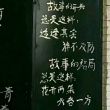 故事的开头
总是这样
适逢其会
猝不及防
故事的结局
总是这样
花开两朵
天各一方